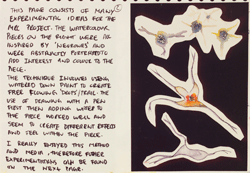 THIS PAGE CONSISTS OF MANY
EXPERIMENTAL IDEAS FOR THE
PROJECT. THE WATERCOLOUR
PIECES ON THE RIGHT WERE
INSPIRED BY 'NEURONES' AND
WERE ABSTRACTLY PORTRAYED TO
ADD INTEREST AND COLOUR TO THE
PIECE.
THE TECHNIQUE INVOLVES USING
WATERED DOWN PAINT TO CREATE
FREE FLOWING TRAIL. THE
USE OF DRAWING WITH A PEN
FIRST THEN ADDING WATER TO
THE PIECE WORKED WELL AND
SEEM TO CREATE DIFFERENT EFFECTS
AND FEEL WITHIN THE PIECE.
I REALLY ENJOYED THIS METHOD
AND MEDIA, THEREFORE FURTHER
EXPERIMENTATIONS CAN BE FOUND
ON THE NEXT PAGE.